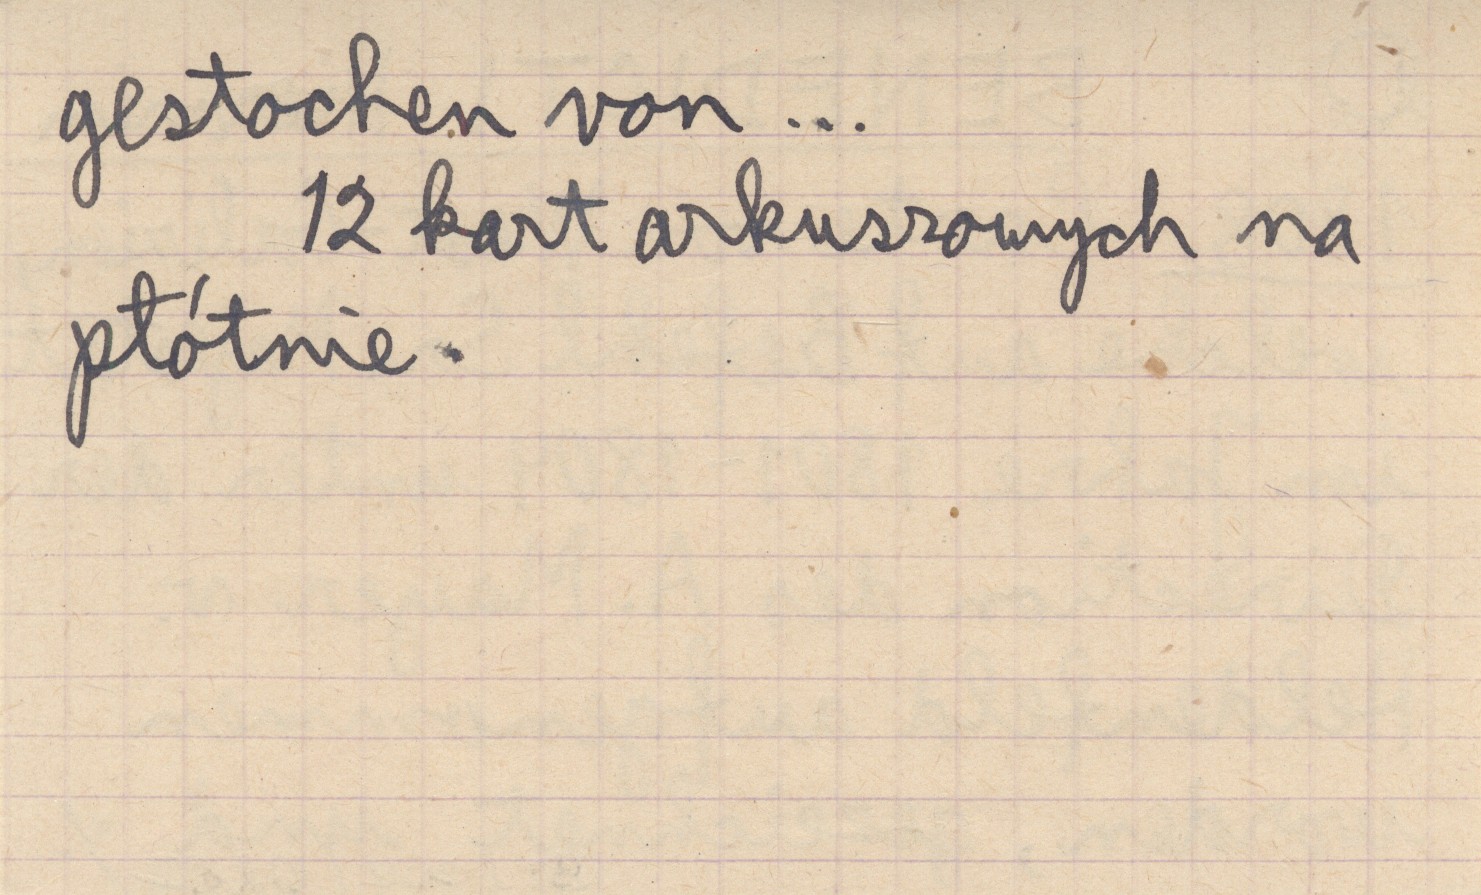 gestochen von ...
12 kart arkuszowych na
płótnie.